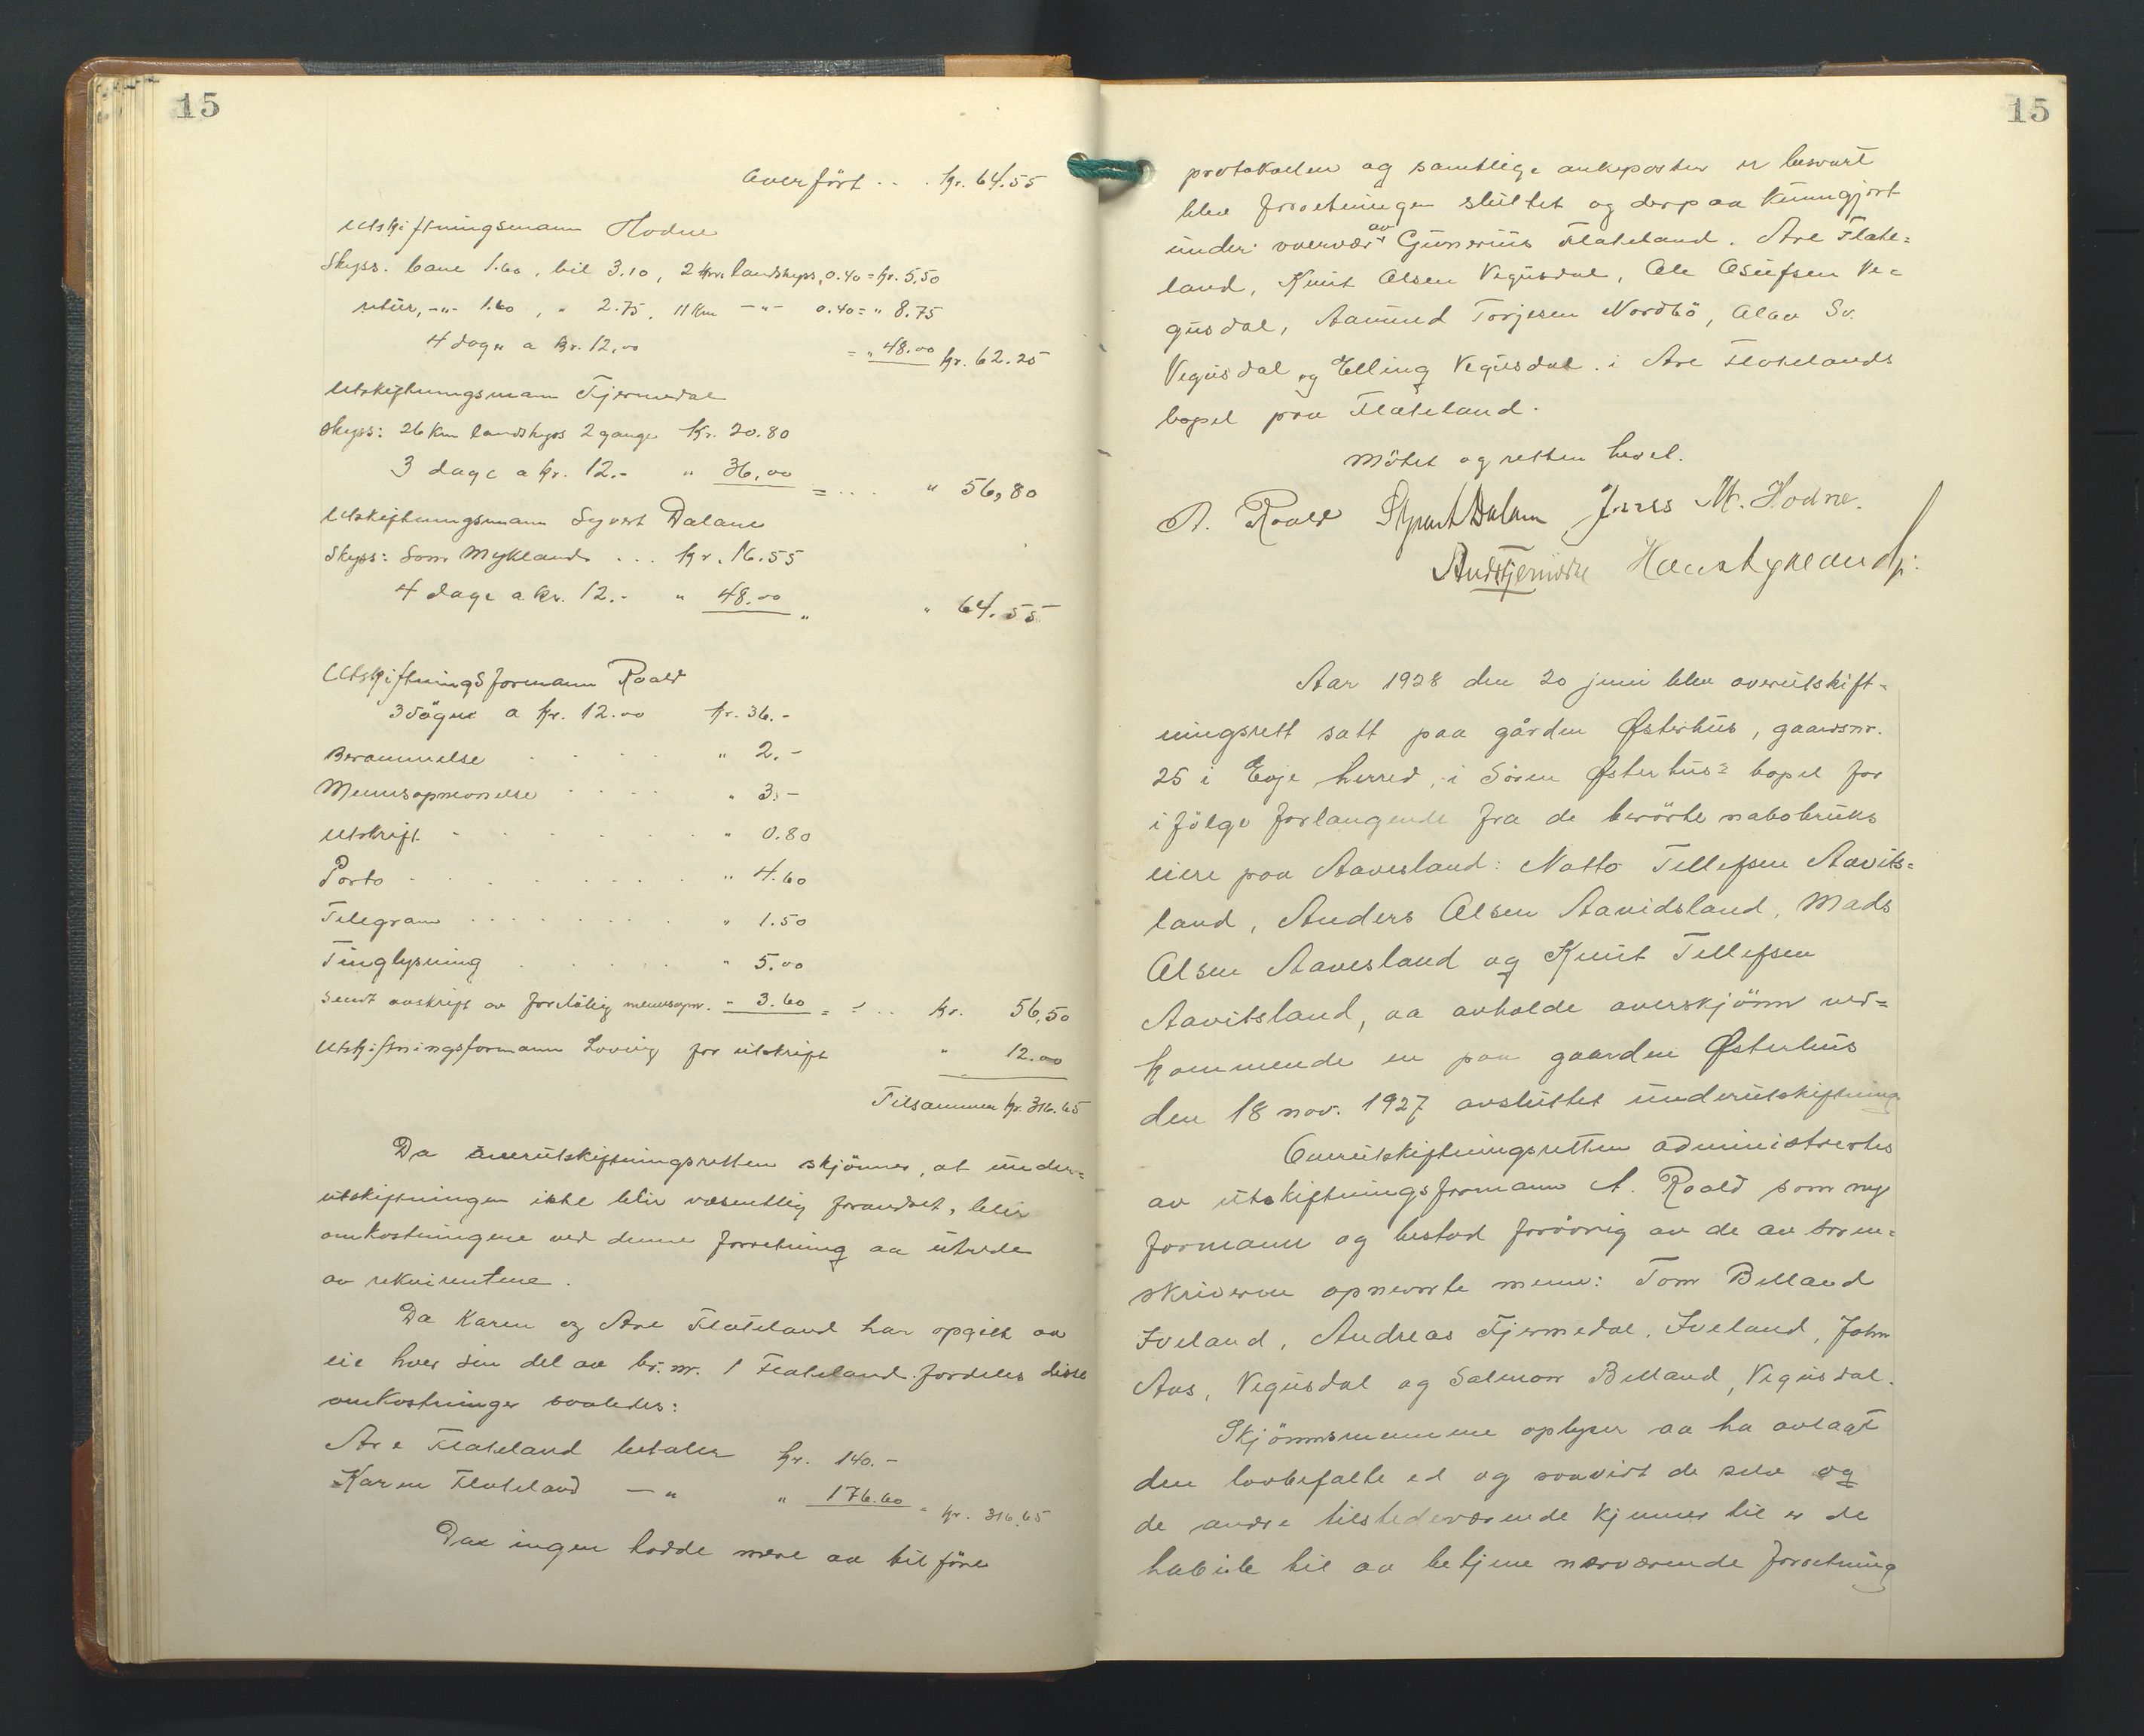 15
Overført . . . kr. 64.55
Utskiftningsmann Hodne
Skyss. bane 1.60, bil 3.10, 2 km landskyss, 0.40 = kr. 5.50
retur, -"- 1.60, " 2.75, 11 km -"- 0.40 = " 8.75
4 dage a kr. 12.00 = " 48.00 kr. 62.25
Utskiftningsmann Tjermedal
Skyss: 26 km landskyss 2 gange kr. 20.80
3 dage a kr. 12.- " 36.00 = . . . " 56,80
Utskiftningsmann Syvert Dalane
Skyss: Som Mykland . . . kr. 16.55
4 dage a kr. 12.- " 48.00 " " 64.55
Utskiftningsformann Roald
3 døgne a kr. 12.00 kr. 36.-
Berammelse . . . . " 2.-
Mennsopnevnelse . . . . " 3.-
Utskrift . . . . " 0.80
Porto . . . . " 4.60
Telegram . . . . " 1.50
Tinglysning . . . . " 5.00
Sendt avskrift av foreløbig mennsopn. " 3.60 = = . . kr. 56,50
Utskiftningsformann Loving for utskrift " 12.00
Tilsammen kr. 316.65
Da overutskiftningsretten skjønner, at under=
utskiftningen ikke blir væsentlig forandret, blir
omkostningene ved denne forretning aa utrede
av rekvirentene.
Da Karen og Are Flateland har opgitt aa
eie hver sin del av br. nr. 1 Flateland fordeles disse
omkostninger saaledes:
Are Flateland betaler kr. 140.-
Karen Flateland -"- " 176.60 = kr. 316.65
Da ingen hadde mere aa tilføre
15
protokollen og samtlige ankeposter er besvart
blev forretningen sluttet og derpaa kunngjort
under overvær av Gunerius Flateland. Are Flate=
land, Knut Olsen Vegusdal, Ole Osufsen Ve=
gusdal, Aamund Torjesen Nordbö, Olav Sv.
Vegusdal og Elling Vegusdal i Are Flatelands
bopel paa Flateland.
Mötet og retten hevet.
A. Roald Syvert Dalane Jens M. Hodne.
And. Tjermedal Hans Mykland
Aar 1928 den 20 juni blev overutskift=
ningsrett satt paa gården Østerhus, gaardsnr.
25 i Evje herred, i Sören Østerhus' bopel for
i følge forlangende fra de berörte nabobruks
eiere paa Aavesland: Notto Tellefsen Aavits=
land, Anders Olsen Aavidsland, Mads
Olsen Aavesland og Knut Tellefsen
Aavitsland, aa avholde overskjönn ved=
kommende en paa gaarden Østerhus
den 18 nov. 1927 avsluttet underutskiftning
Overutskiftningsretten administrertes
av utskiftningsformann A. Roald som ny
formann og bestod forövrig av de av soren=
skriveren opnevnte menn: Tom Belland
Iveland, Andreas Tjermedal, Iveland, John
Aas, Vegusdal og Salmon Belland, Vegusdal.
Skjönnsmennene oplyser aa ha avlagt
den lovbefalte ed og saavidt de selv og
de andre tilstedeværende kjenner til er de
habile til aa betjene nærværende forretning